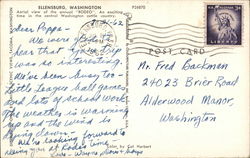 ELLENSBURG, WASHINGTON
P26870
Aerial view of the annual "RODEO". An exciting
time in the central Washington cattle country.
POST CARD
Dear Poppa -
We were glad to
hear that your trip
was so interesting.
We've been busy too -
Little League ball games
and lots of school work.
The weather is warming
up and the wind is
dying down -
We're looking forward to
seeing you at Rodeo time
Love - Wayne
Mr. Fred Backman
24023 Brier Road
Alderwood Manor,
Washington